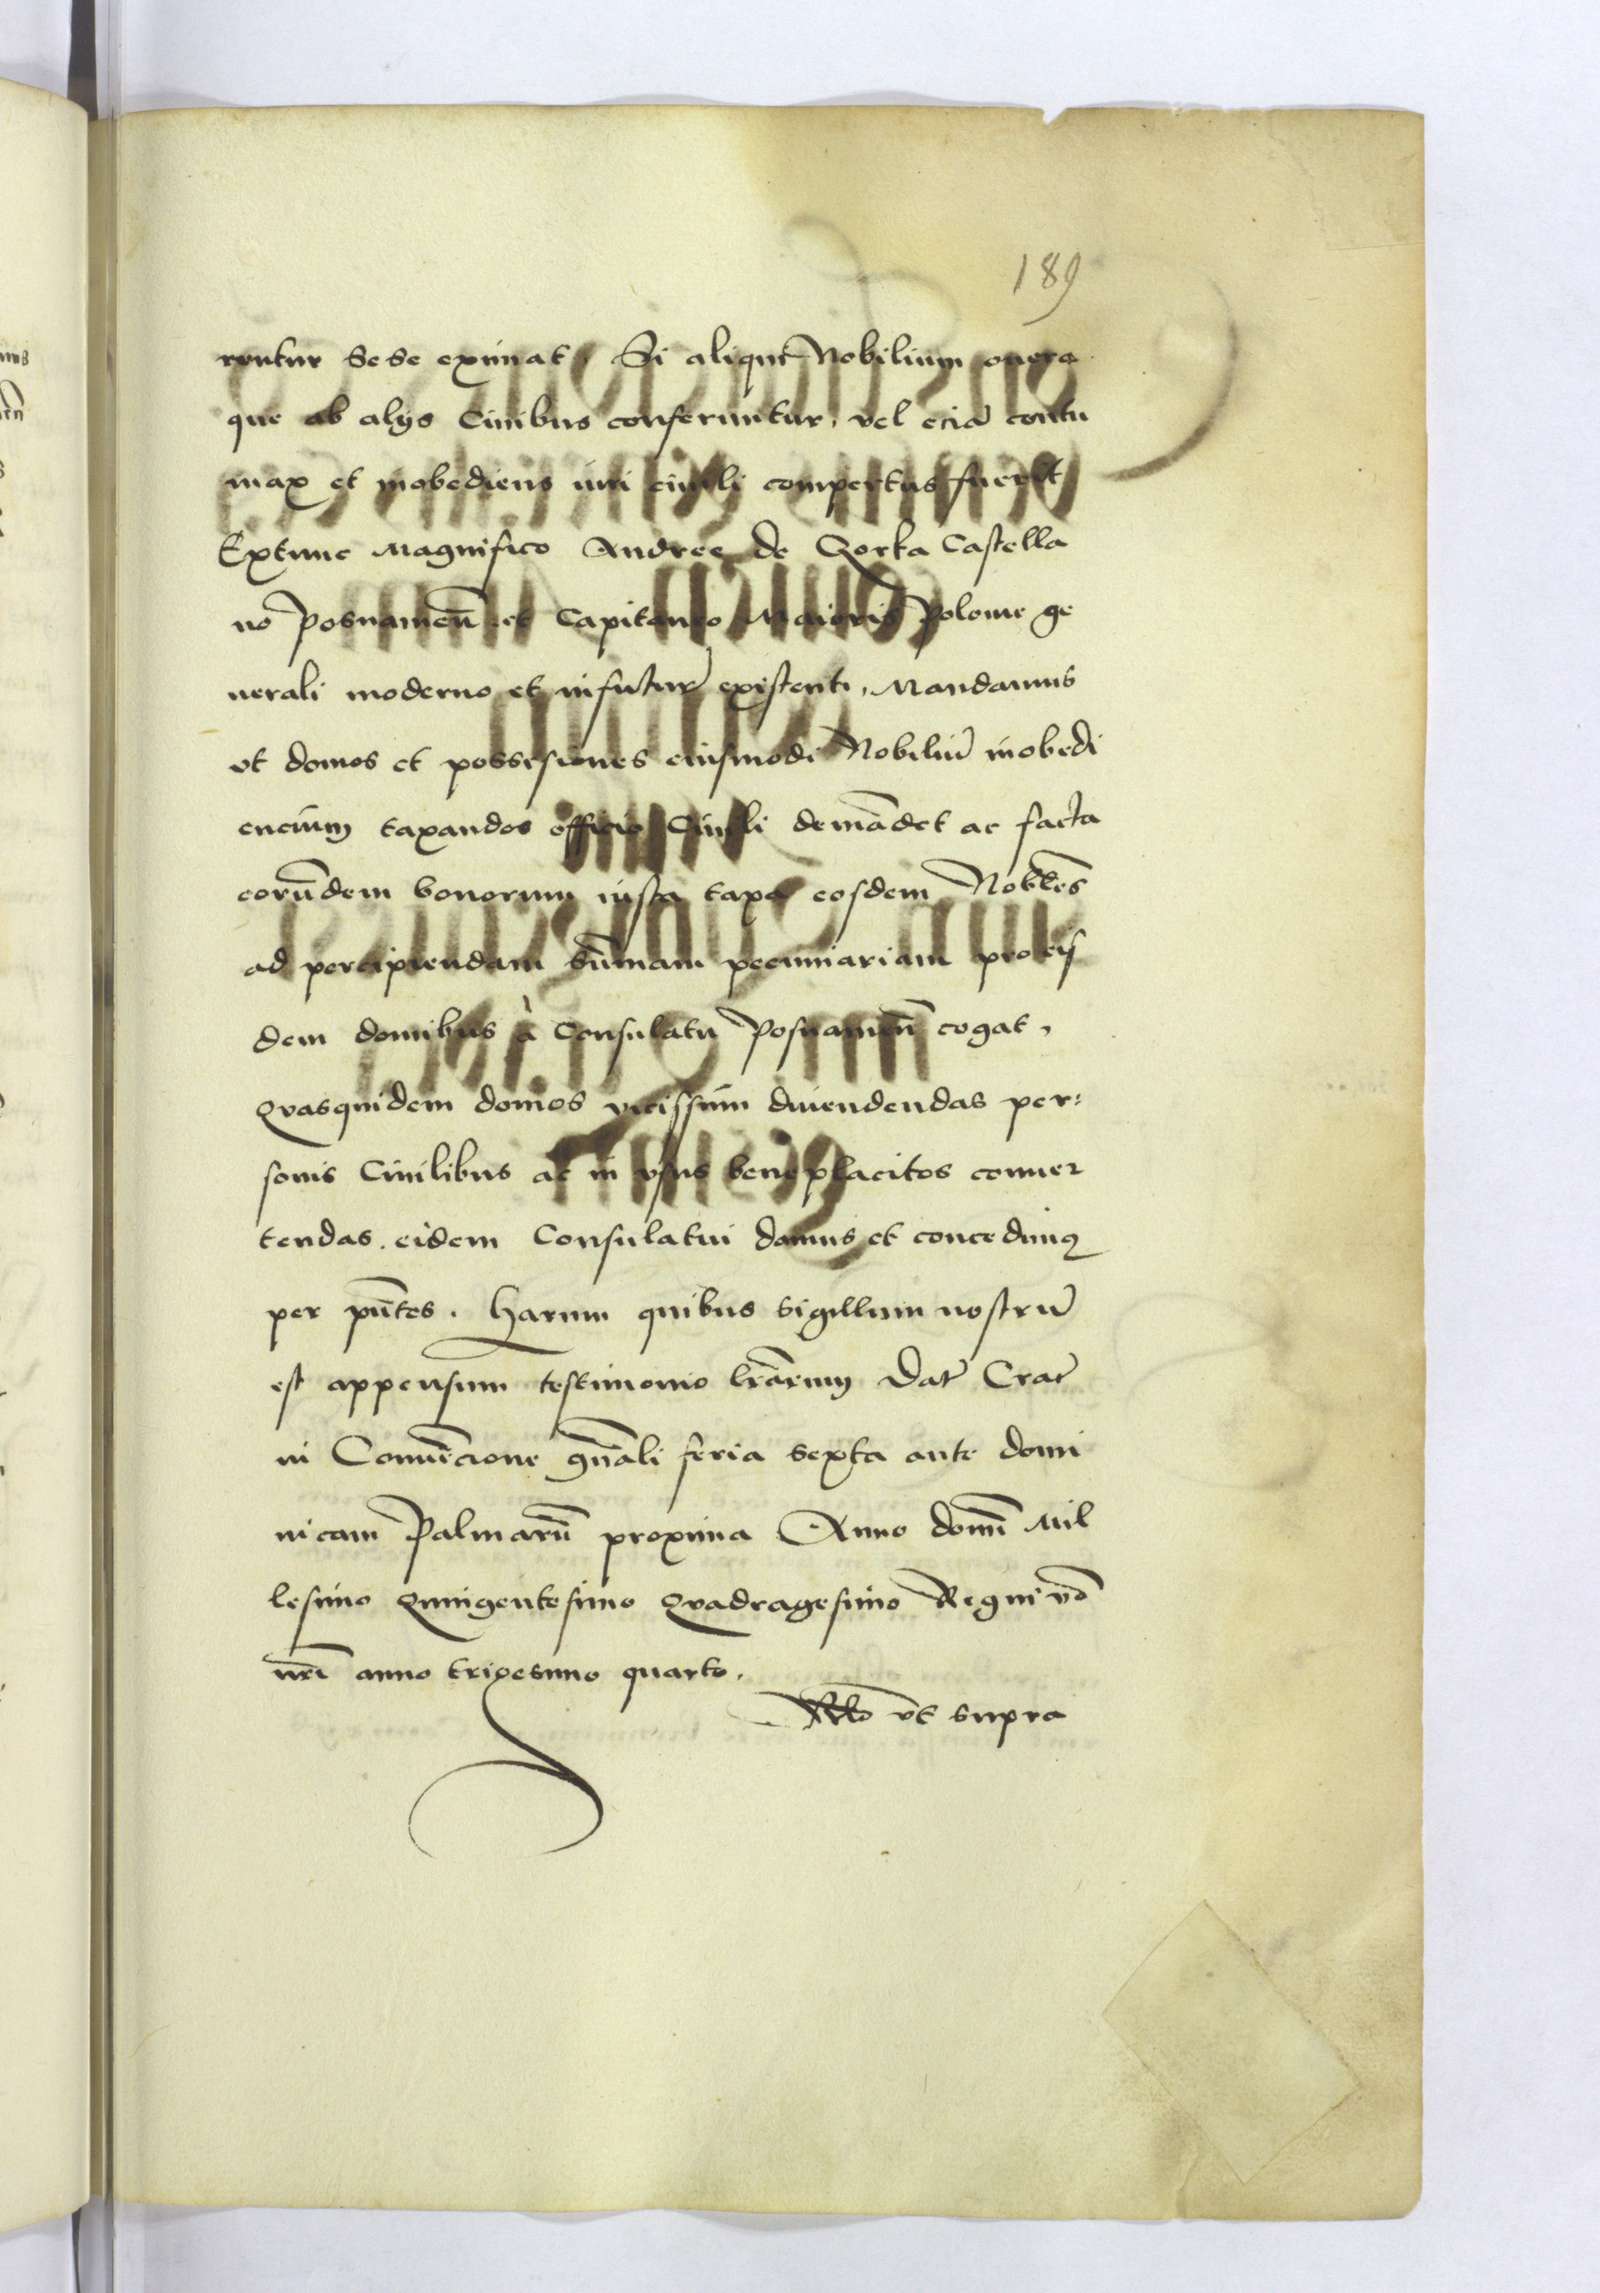 189
rentur sese eximat, Si aliquis Nobilium onera
que ab alÿs Ciuibus conferuntur, vel eciã contu
max et inobediens iuri ciuili compertus fuerit
Extunc Magnifico Andree de Gorka Castella
no Posnanien̄ et Capitaneo Maioris Polonie ge
nerali moderno et infuturū existenti, Mandamus
vt domos et possesiones eiusmodi Nobiliū inobedi
encium taxandos officio Ciuili demādet ac facta
eorūdem bonorum iusta taxa eosdem Nobiles
ad percipiendam sūmam pecuniariam pro eis
dem domibus à Consulatu Posnanien̄ cogat,
Quasquidem domos vicissim diuendendas per:
sonis Ciuilibus ac in vsus bene placitos conuer
tendas. eidem Consulatui damus et concedimus
per pñtes. Harum quibus sigillum nostrū
est appensum testimonio lrārum Dat̄ Crac̄
in Conuēcione gñali feria sexta ante domi
nicam Palmarū proxima Anno domī Mil
lesimo Quingentesimo Quadragesimo Regni vō
nrī anno trigesimo quarto.
Rlō vt supra